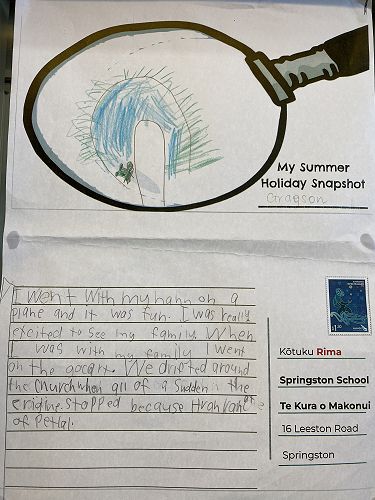 My Summer
Holiday Snapshot
Grayson
I went with my nann on a
plane and it was fun. I was really
excited to see my family. When
I was with my family I went
on the gocart. We drifted around
the church when all of a Sudden the
engine stopped because it ran
of Petlal.
$1.30
Kōtuku Rima
Springston School
Te Kura o Makonui
16 Leeston Road
Springston